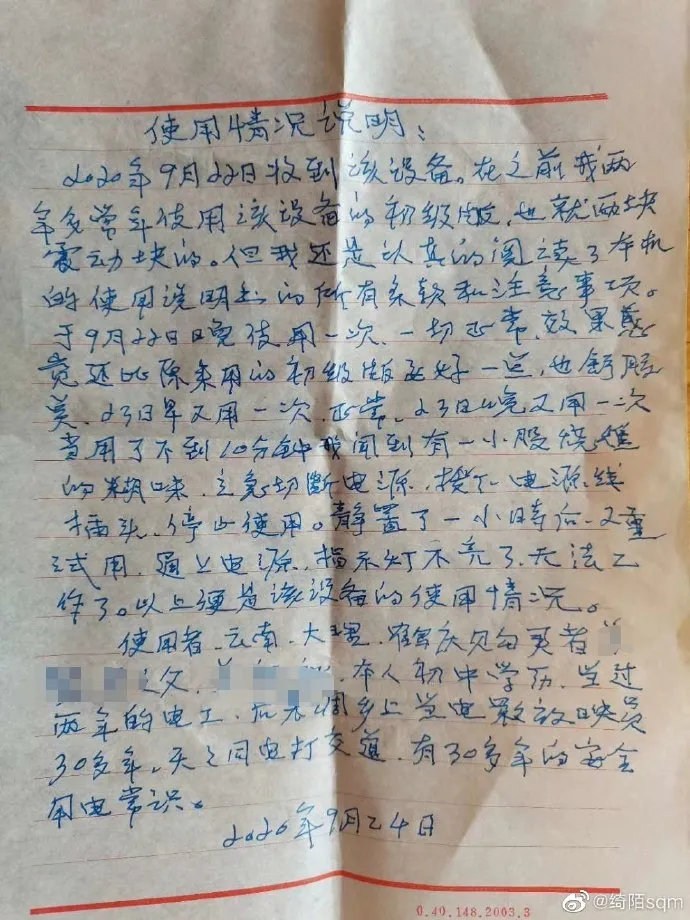 使用情况说明：
2020年9月22日收到该设备。在之前我两
年多常年使用该设备的初级版，也就两块
震动块的。但我还是认真的阅读了本机
的使用说明书的所有条款和注意事项。
于9月22日晚使用一次，一切正常，效果感
觉还比原来用的初级版更好一点，也舒服
些、23日早又用一次、正常、23日晚又用一次
当用了不到10分钟我闻到有一小股烧焦
的糊味，立急切断电源，拔下电源线
插头，停止使用。静置了一小时后，又重
试用，通上电源，指示灯不亮了，无法工
作了。以上便是该设备的使用情况。
使用者，云南、大理、鹤庆 购买者
之父，本人初中学历，当过
两年的电工，后来 乡上当电影放映员
30多年，天天同电打交道，有30多年的安全
用电常识。
2020年9月24日
0.40.148.2003.3
@绮陌sqm